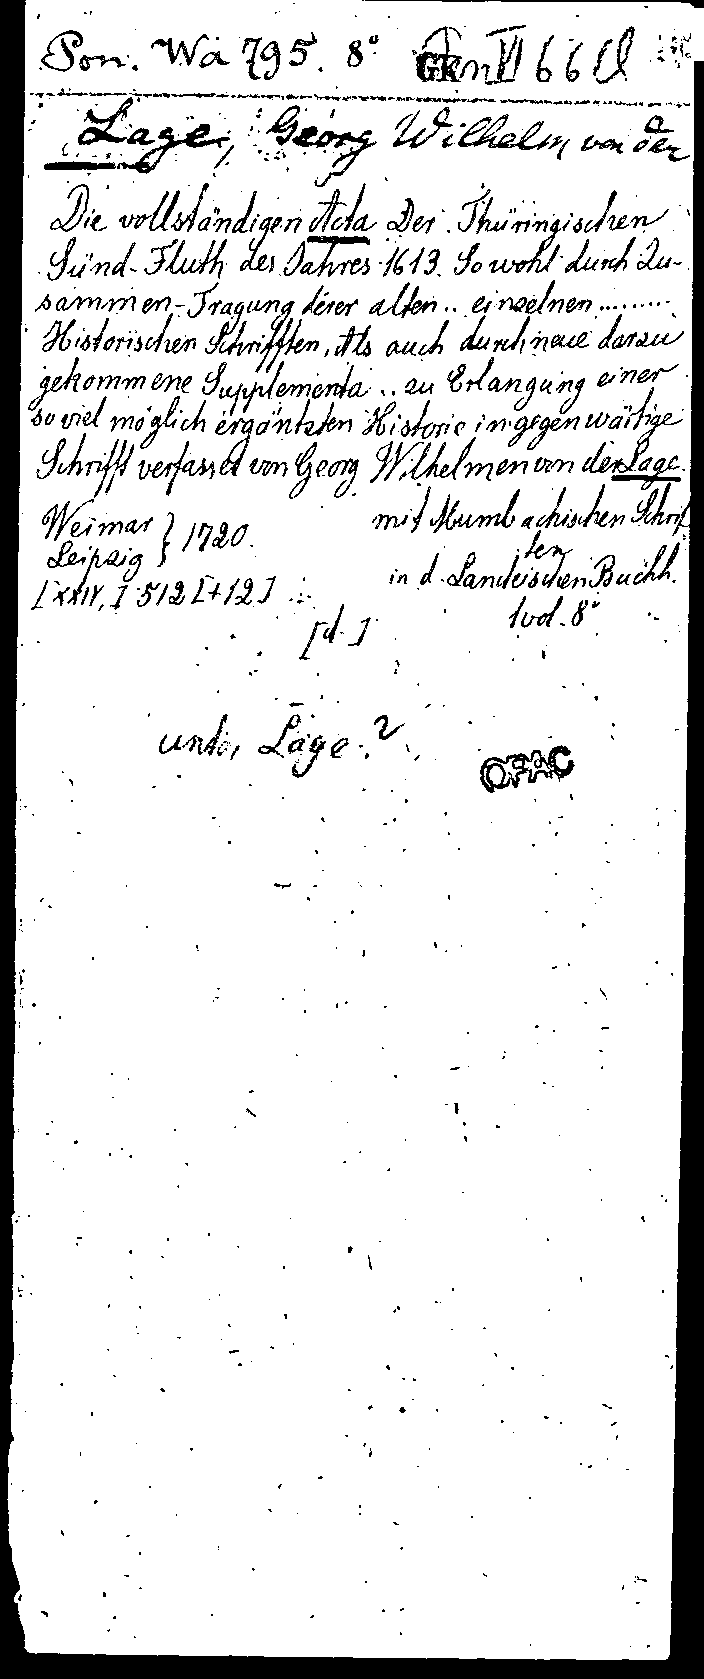 Pon. Wa 795. 8° Gen VI 66 d
Lage, Georg Wilhelm von der
Die vollständigen Acta Der Thüringischen
Sünd-Fluth des Jahres 1613. Sowohl durch Zu-
sammen-Tragung derer alten .. einzelnen .........
Historischen Schrifften, Als auch durch neue darzu
gekommene Supplementa .. zu Erlangung einer
so viel möglich ergäntzten Historie in gegenwärtige
Schrifft verfasset von Georg Wilhelmen von der Lage.
Weimar } 1720. mit Mumbachischen Schrif
Leipzig ten
[XXIV,] 512 [+12] in d. Landeischen Buchh.
1 vol. 8°
[d.]
unter Lage ?
OFAC